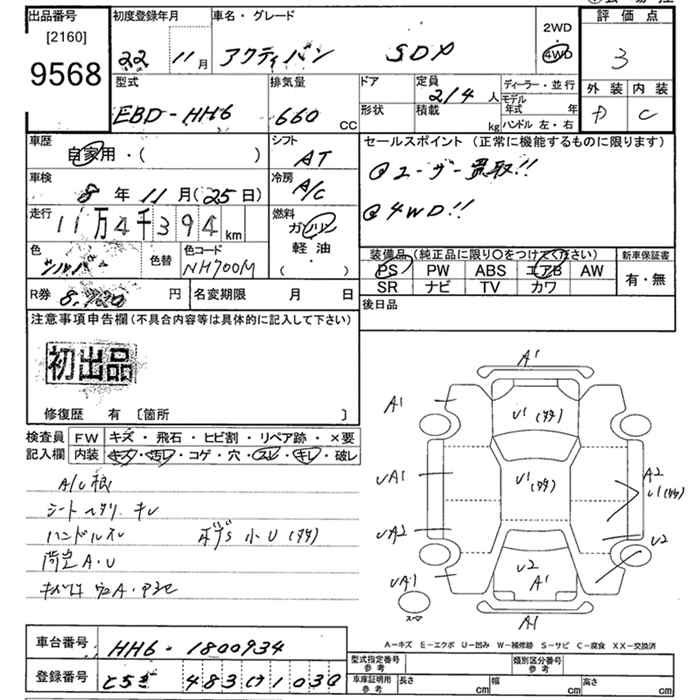 出品番号
[2160]
9568
初度登録年月
22 11月
車名・グレード
アクティバン SDX
2WD
4WD
評価点
3
型式
EBD-HH6
排気量
660 CC
ドア
形状
定員
2/4 人
積載
kg
ディーラー・並行
モデル年式 年
ハンドル 左・右
外装 内装
D C
車歴
自家用・( )
シフト
AT
セールスポイント (正常に機能するものに限ります)
@ユーザー買取!!
@4WD!!
車検
8年11月(25日)
冷房
A/C
走行
11万4千394km
燃料
ガソリン
軽油
( )
色
シルバー
色替
色コード
NH700M
装備品(純正品に限り〇をつけてください)
PS PW ABS エアB AW
SR ナビ TV カワ
新車保証書
有・無
R券 8,920円
名変期限 月 日
後日品
注意事項申告欄(不具合内容等は具体的に記入して下さい)
初出品
修復歴 有 [箇所 ]
検査員記入欄
FW キズ・飛石・ヒビ割・リペア跡・×要
内装 キズ・汚レ・コゲ・穴・スレ・キレ・破レ
シートヘタリ キレ
ハンドルスレ
小U(タタ)
荷室A・U
A1
A1
U1(タタ)
UA1
U1(タタ)
A2
U1(タタ)
UA2
U2
U2
A1
UA1
スペア
A1
A-キズ E-エクボ U-凹み W-補修跡 S-サビ C-腐食 XX-交換済
車台番号
HH6-1800934
登録番号
とちぎ 483 い 1030
型式指定番号
参考
類別区分番号
参考
車庫証明用
参考
長さ cm
幅 cm
高さ cm